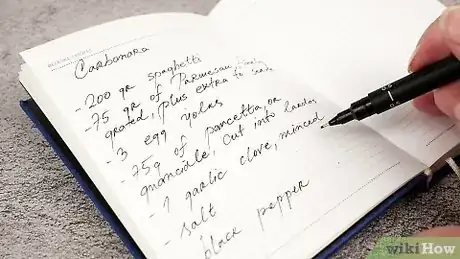 Carbonara
- 200 gr spaghetti
- 75 gr of Parmesan, finely
grated, plus extra to serve
- 3 egg yolks
- 75g of pancetta, or
guanciale, cut into lardon
- 1 garlic clove, minced
- salt
- black pepper
wikiHow